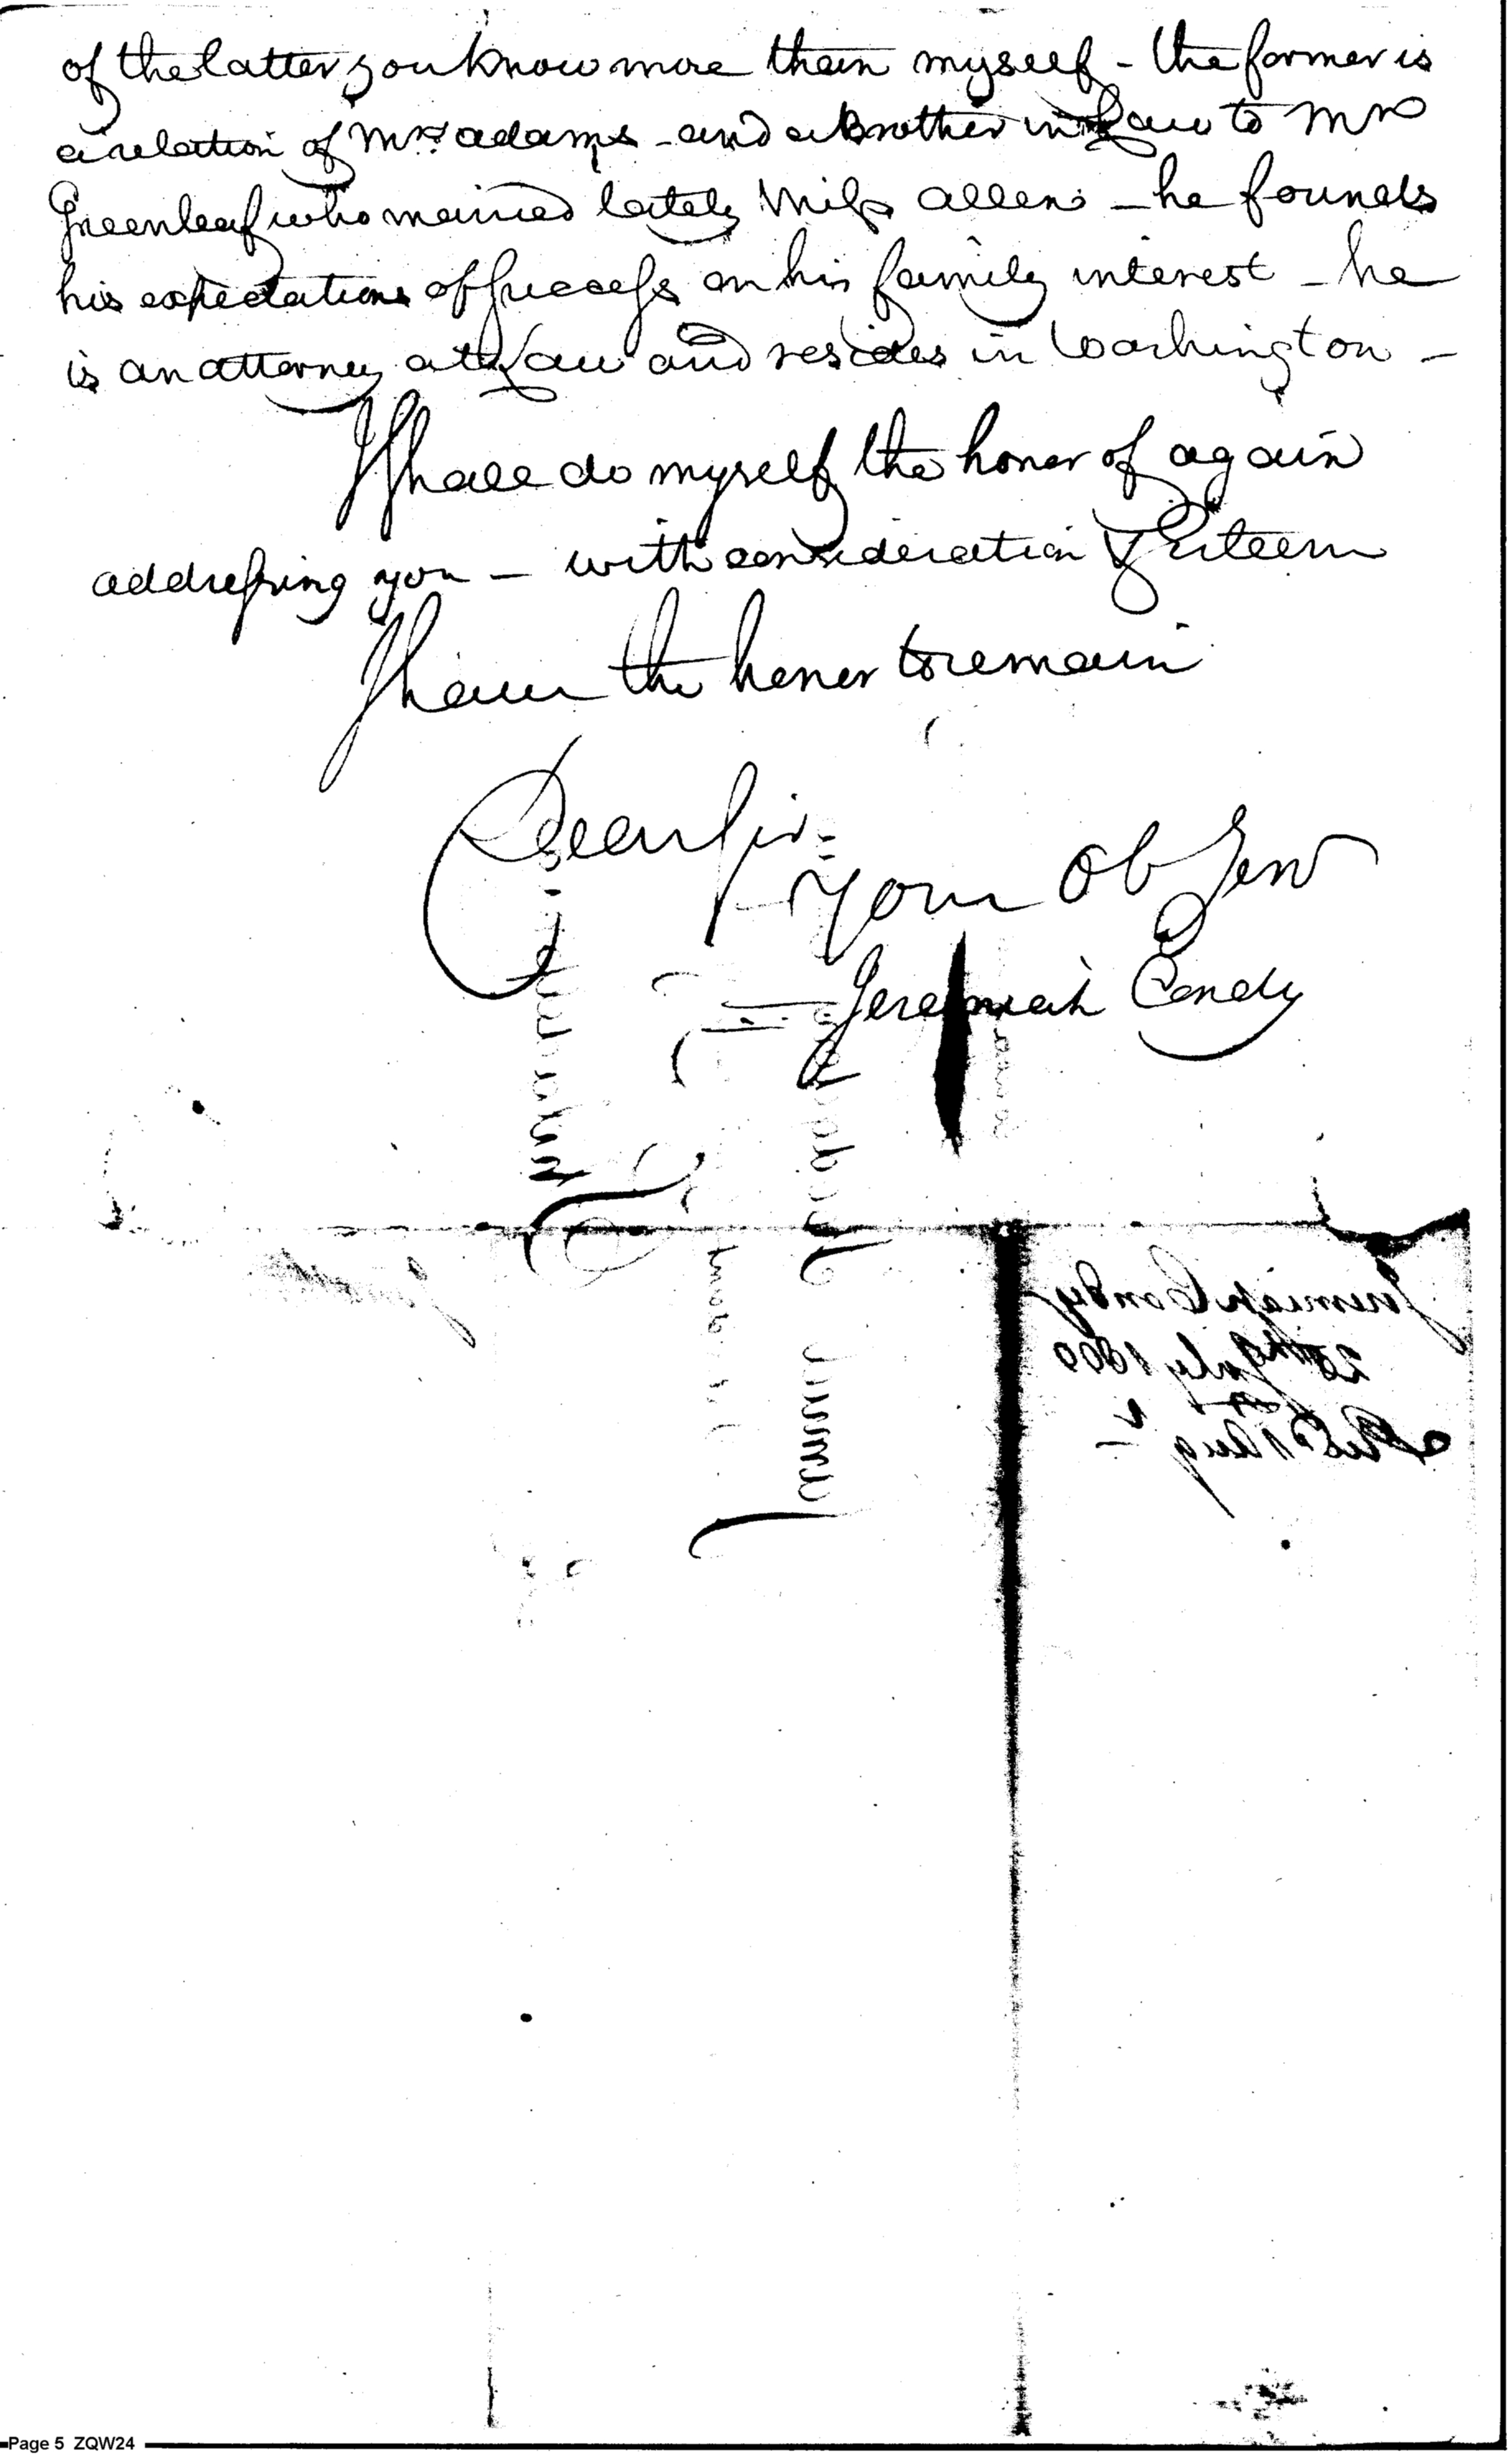 of the latter you know more than myself - the former is
a relation of Mrs. adams - and a Brother in Law to Mr
Greenleaf who married lately Miss allen - he founds
his expectations of Success on his family interest - he
is an attorney at Law and resides in Washington -
I Shall do myself the honor of again
addressing you - with consideration & Esteem
I have the honor to remain
Dear Sir
your Ob Serv
Jeremiah Condy
Jeremiah Condy
July 1800
Aug
Page 5 ZQW24